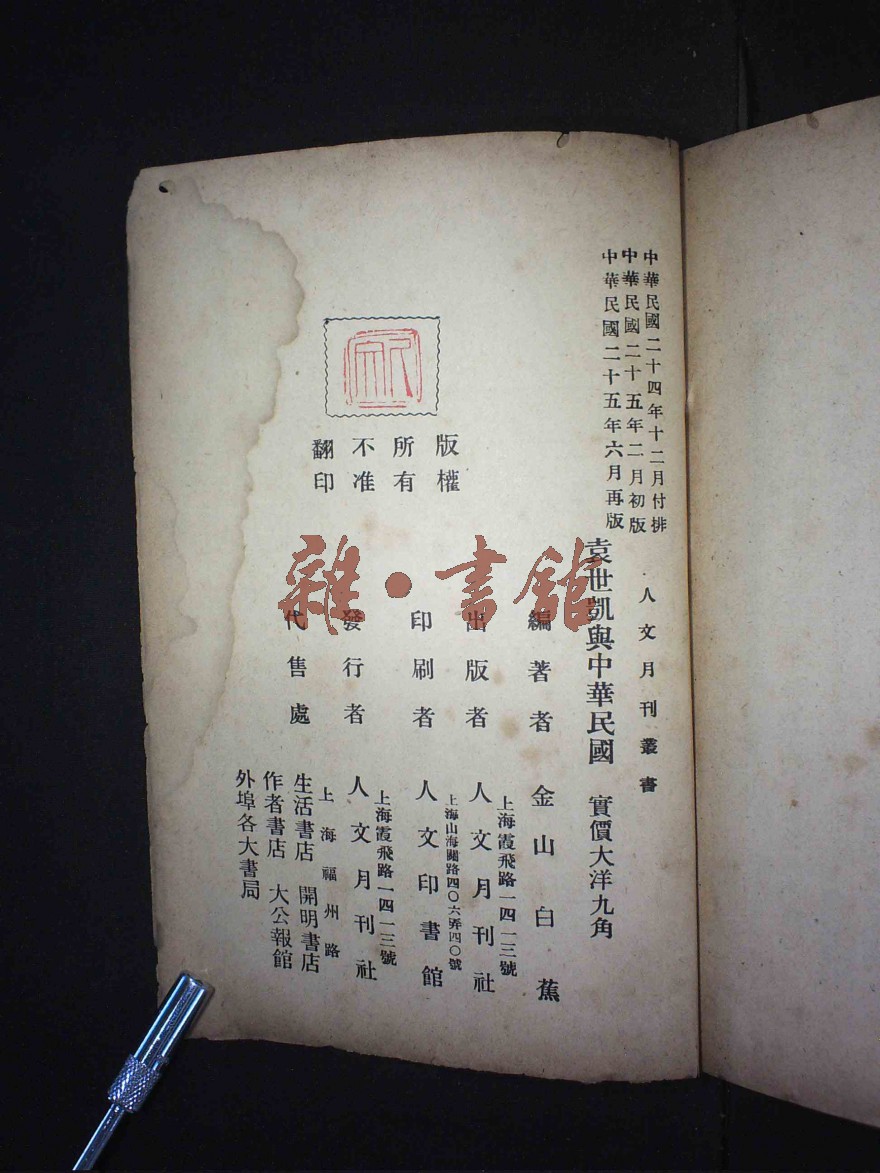 中華民國二十四年十二月付排
中華民國二十五年二月初版
中華民國二十五年六月再版
人文月刊叢書
袁世凱與中華民國 實價大洋九角
版權
所有
不准
翻印
編著者 金山白蕉
上海霞飛路一四一三號
出版者 人文月刊社
上海山海關路四〇六弄四〇號
印刷者 人文印書館
上海霞飛路一四一三號
發行者 人文月刊社
上海福州路
代售處 生活書店 開明書店
作者書店 大公報館
外埠各大書局
雜·書館